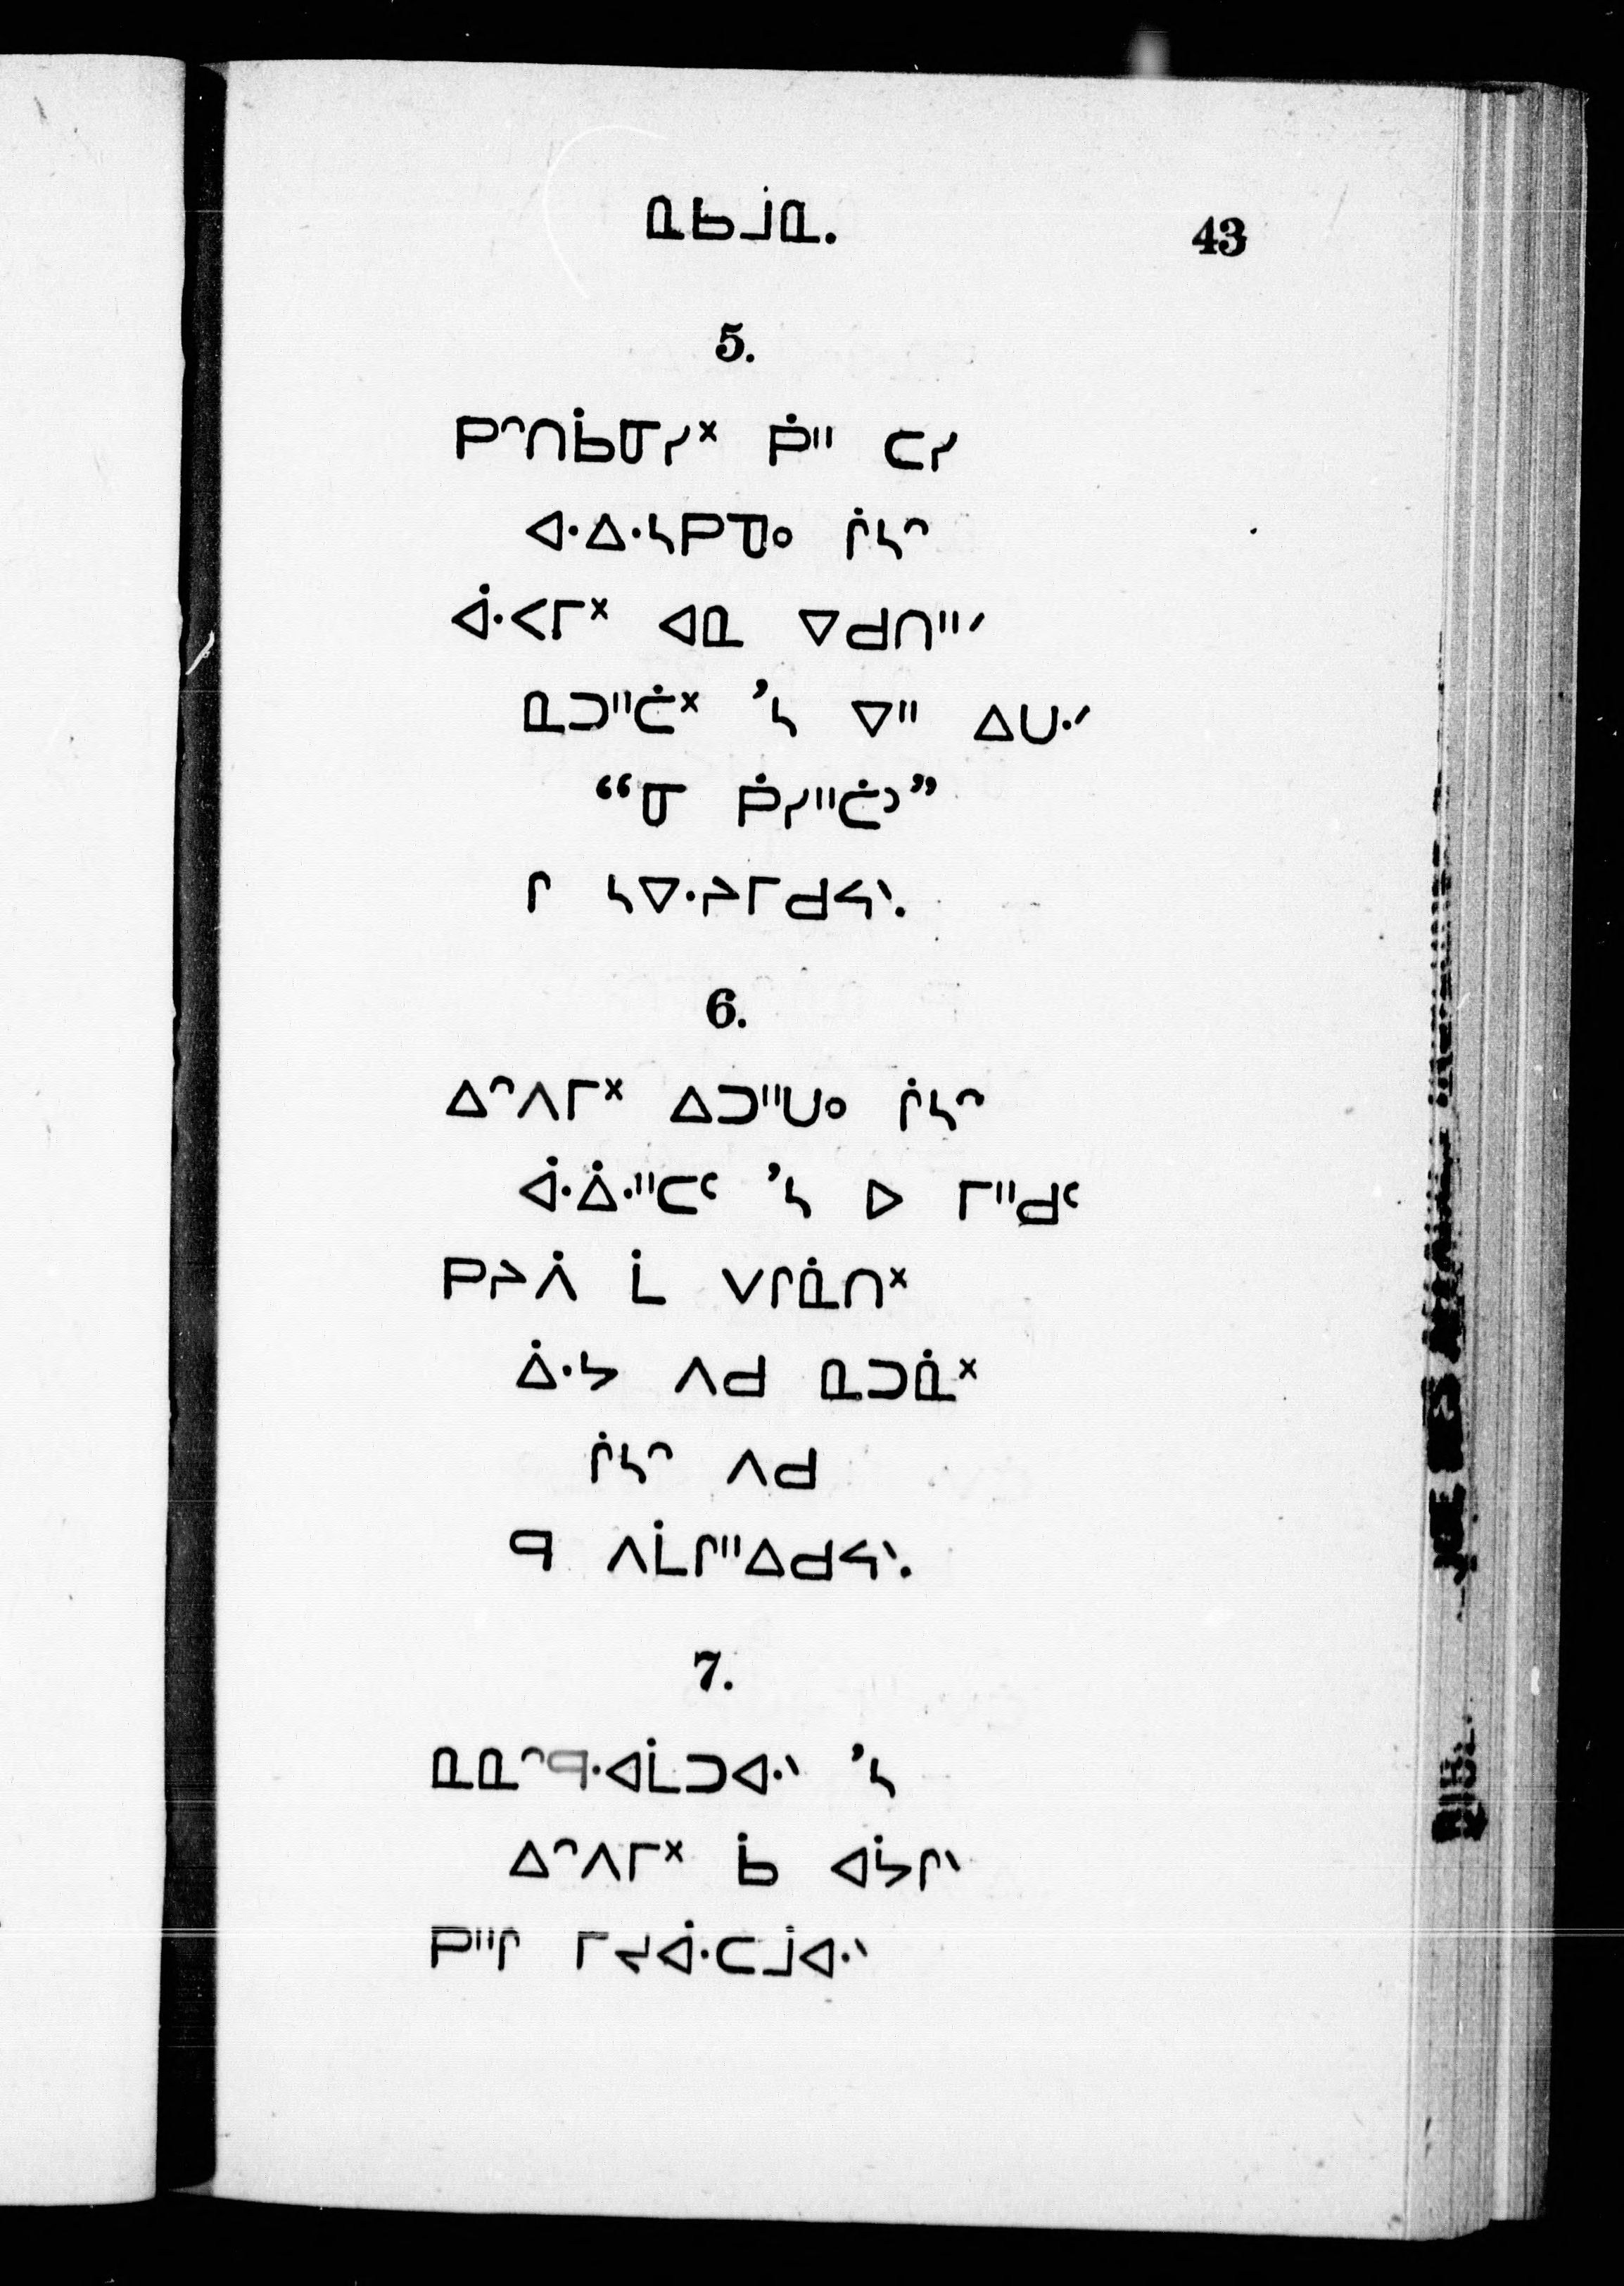 ᓇᑲᒨᓇ. 43
5.
ᑭᐢᑎᑳᓂᓯᕽ ᑮᐦ ᑕᓯ
ᐊᐧᐃᐧᓴᑭᑌᐤ ᒌᓴᐢ
ᐋᐧᐸᒥᕽ ᐊᓇ ᐁᑯᑎᐦᐟ
ᓇᑐᐦᑖᕽ ’ᓴ ᐁᐦ ᐃᑌᐧᐟ
“ᓂ ᑮᓯᐦᑖᐣ”
ᒋ ᓴᐁᐧᔨᒥᑯᔭᐠ.
6.
ᐃᐢᐱᒥᕽ ᐃᑐᐦᑌᐤ ᒌᓴᐢ
ᐋᐧᐄᐧᐦᑕᑦ ’ᓴ ᐅ ᒥᐦᑯᑦ
ᑭᔨᐲ ᒫ ᐯᒋᓈᑎᕽ
ᐄᐧᔪ ᐱᑯ ᓇᑐᓈᕽ
ᒌᓴᐢ ᐱᑯ
ᑫ ᐱᒫᒋᐦᐃᑯᔭᐠ.
7.
ᓇᓇᐢᑫᐧᐊᒫᑐᐊᐧᐠ ’ᓴ
ᐃᐢᐱᒥᕽ ᑳ ᐊᔮᒋᐠ
ᑭᐦᒋ ᒥᔪᐋᐧᑕᒨᐊᐧᐠ